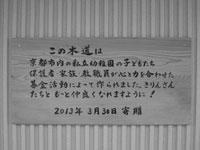 この木道は
京都市内の私立幼稚園の子どもたち
保護者・家族、教職員が心と力を合わせた
募金活動によって作られました。きりんさん
たちともっと仲良くなれますように！
2013年 3月30日 寄贈